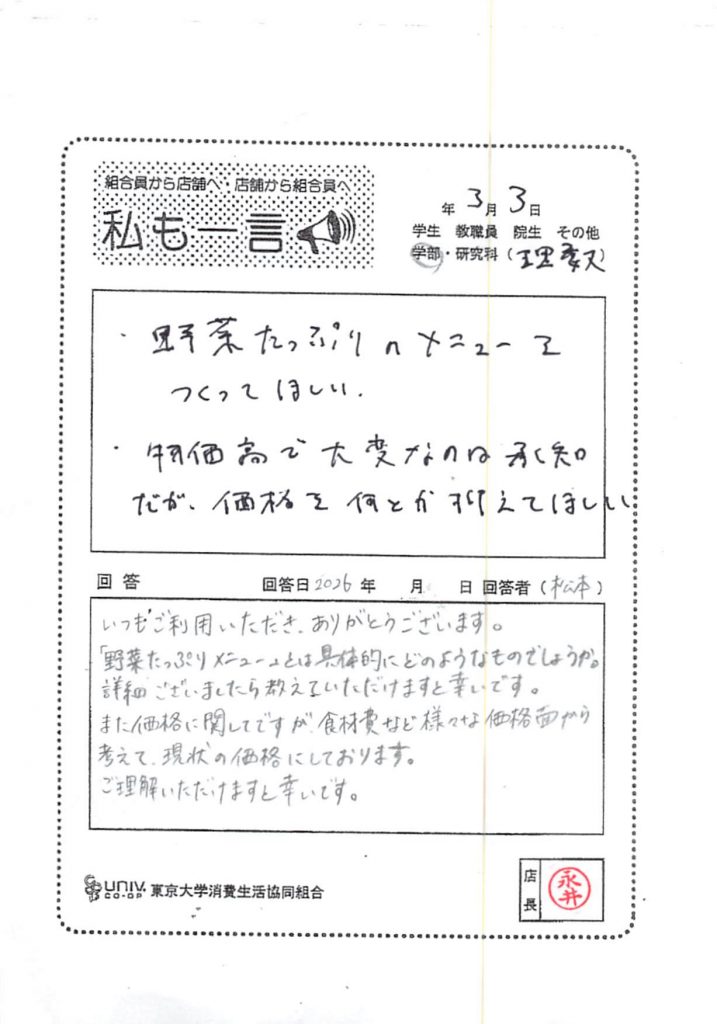 組合員から店舗へ・店舗から組合員へ
私も一言
年 3月 3日
学生 教職員 院生 その他
学部・研究科(理数)
・野菜たっぷりのメニューを
つくってほしい.
・物価高で大変なのは承知
だが、価格を何とか抑えてほしい
回答 回答日2026年 月 日 回答者(松本)
いつもご利用いただき、ありがとうございます。
「野菜たっぷりメニュー」とは具体的にどのようなものでしょうか。
詳細ございましたら教えていただけますと幸いです。
また価格に関してですが、食材費など様々な価格面から
考えて、現状の価格にしております。
ご理解いただけますと幸いです。
UNIV. CO-OP 東京大学消費生活協同組合
店長 永井